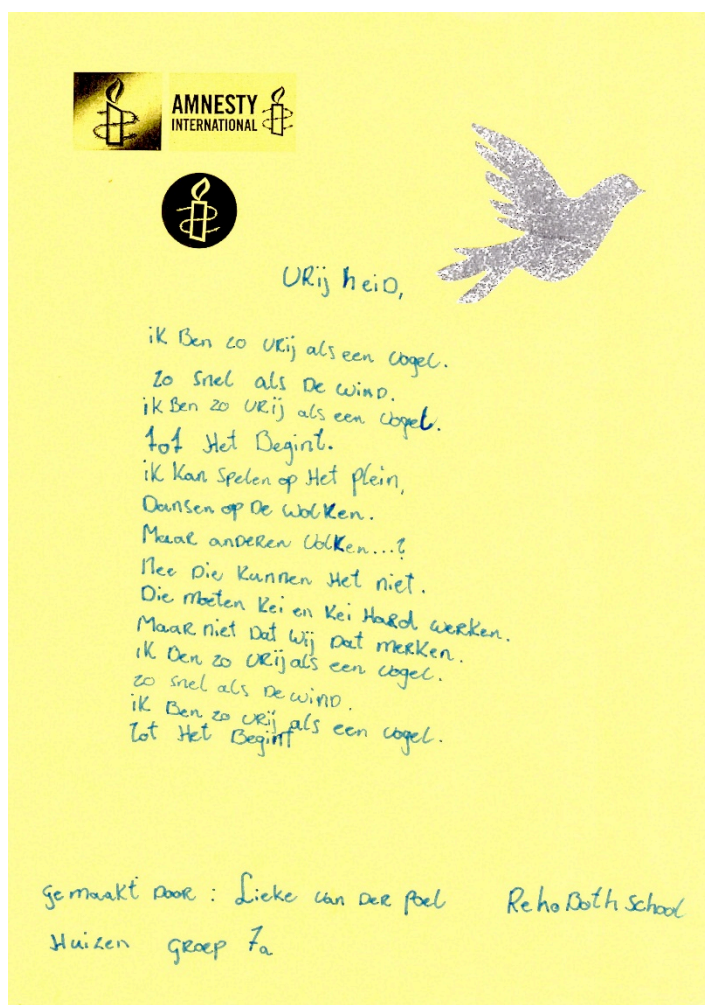 AMNESTY
INTERNATIONAL
VRijheiD,
iK Ben zo VRij als een Vogel.
zo snel als De winD.
ik Ben zo VRij als een Vogel.
tot Het Begint.
iK Kan Spelen op Het plein,
Dansen op De WolKen.
Maar anDeRen VolKen...?
Nee Die Kunnen Het niet.
Die moeten Kei en Kei HaRd weRKen.
MaaR niet Dat Wij Dat meRKen.
iK Ben zo VRij als een Vogel.
zo snel als De winD.
iK Ben zo VRij als een Vogel.
Tot Het Begint
gemaakt DooR : Lieke Van DeR Poel RehoBoth School
Huizen gRoep 7a